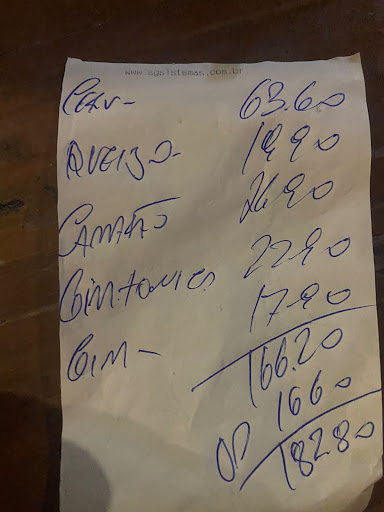 www.sgsistemas.com.br
CERV- 63.60
QUEIJO- 19.90
CAMARÃO 36.90
GIM.TONICA 27.90
GIM- 17.90
166.20
OP 1660
182.80